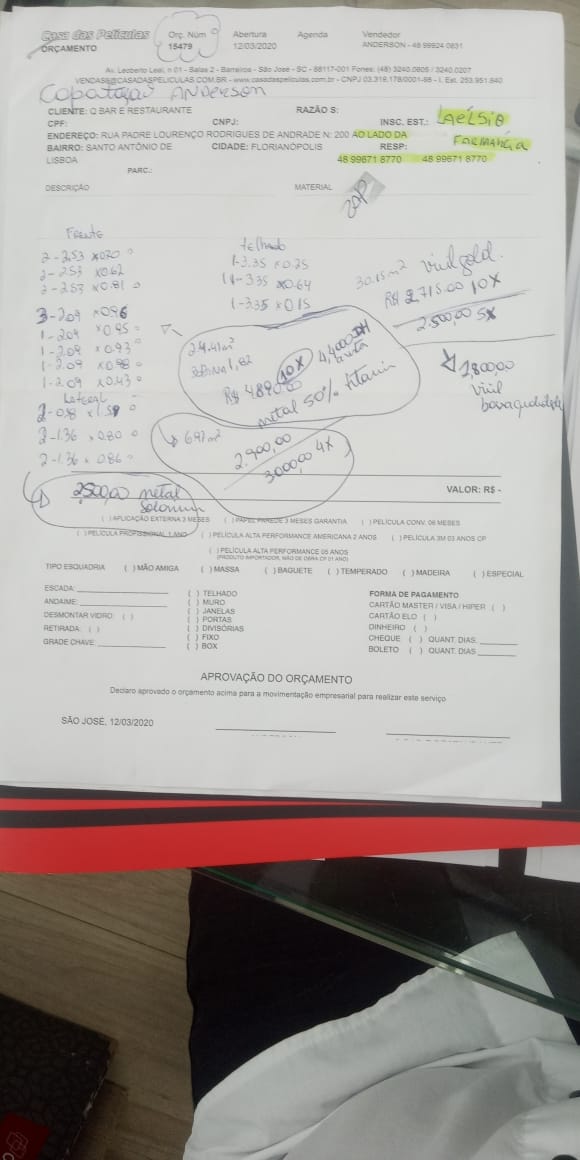 Casa das Películas Orç. Núm Abertura Agenda Vendedor
ORÇAMENTO 15479 12/03/2020 ANDERSON - 48 99924 0831
Av. Leoberto Leal, n 01 - Salas 2 - Barreiros - São José - SC - 88117-001 Fones: (48) 3240.0606 / 3240.0207
VENDAS@CASADASPELICULAS.COM.BR - www.casadaspeliculas.com.br - CNPJ 03.319.178/0001-98 - I. Est. 253.951.940
ANDERSON
CLIENTE: Q BAR E RESTAURANTE RAZÃO S:
CPF: CNPJ: INSC. EST.: LAÉLSIO
ENDEREÇO: RUA PADRE LOURENÇO RODRIGUES DE ANDRADE N: 200 AO LADO DA FARMÁCIA
BAIRRO: SANTO ANTÔNIO DE CIDADE: FLORIANÓPOLIS RESP:
LISBOA 48 99671 8770 48 99671 8770
PARC.:
DESCRIÇÃO MATERIAL
ZAP
Frente
2-2.53 x0.20
2-2.53 x0.62
2-2.53 x0.81
3-2.09 x0.96
1-2.09 x0.95
1-2.09 x0.93
1-2.09 x0.98
1-2.09 x0.43
Lateral
2-1.36 x0.80
2-1.36 x0.86
telhado
1-3.35 x0.25
11-3.35 x0.64
1-3.35 x0.15
30.15m² vinil gold.
R$ 2.715.00 10X
2.500,00 5X
1,800,00
vinil
24.41m²
BOBINA 1,82
10X
metal 50% titanium
6.97m²
2.900,00
3000,00 4X
2500,00 metal
VALOR: R$ -
( ) APLICAÇÃO EXTERNA 3 MESES ( ) PAPEL PAREDE 3 MESES GARANTIA ( ) PELÍCULA CONV. 06 MESES
( ) PELÍCULA PROFISSIONAL 1 ANO ( ) PELÍCULA ALTA PERFORMANCE AMERICANA 2 ANOS ( ) PELÍCULA 3M 03 ANOS CP
( ) PELÍCULA ALTA PERFORMANCE 05 ANOS
(PRODUTO IMPORTADOR, MÃO DE OBRA CP 01 ANO)
TIPO ESQUADRIA ( ) MÃO AMIGA ( ) MASSA ( ) BAGUETE ( ) TEMPERADO ( ) MADEIRA ( ) ESPECIAL
ESCADA:
ANDAIME:
DESMONTAR VIDRO: ( )
RETIRADA: ( )
GRADE CHAVE:
( ) TELHADO
( ) MURO
( ) JANELAS
( ) PORTAS
( ) DIVISÓRIAS
( ) FIXO
( ) BOX
FORMA DE PAGAMENTO
CARTÃO MASTER / VISA / HIPER ( )
CARTÃO ELO ( )
DINHEIRO ( )
CHEQUE ( ) QUANT. DIAS:
BOLETO ( ) QUANT. DIAS
APROVAÇÃO DO ORÇAMENTO
Declaro aprovado o orçamento acima para a movimentação empresarial para realizar este serviço
SÃO JOSÉ, 12/03/2020